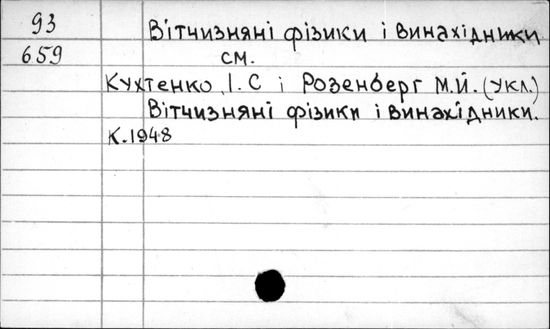 93 Вітчизняні фізики і винахідники
659 см.
Кухтенко, І. С і Розенберг М.Й. (укл.)
Вітчизняні фізики і винахідники.
К.1948